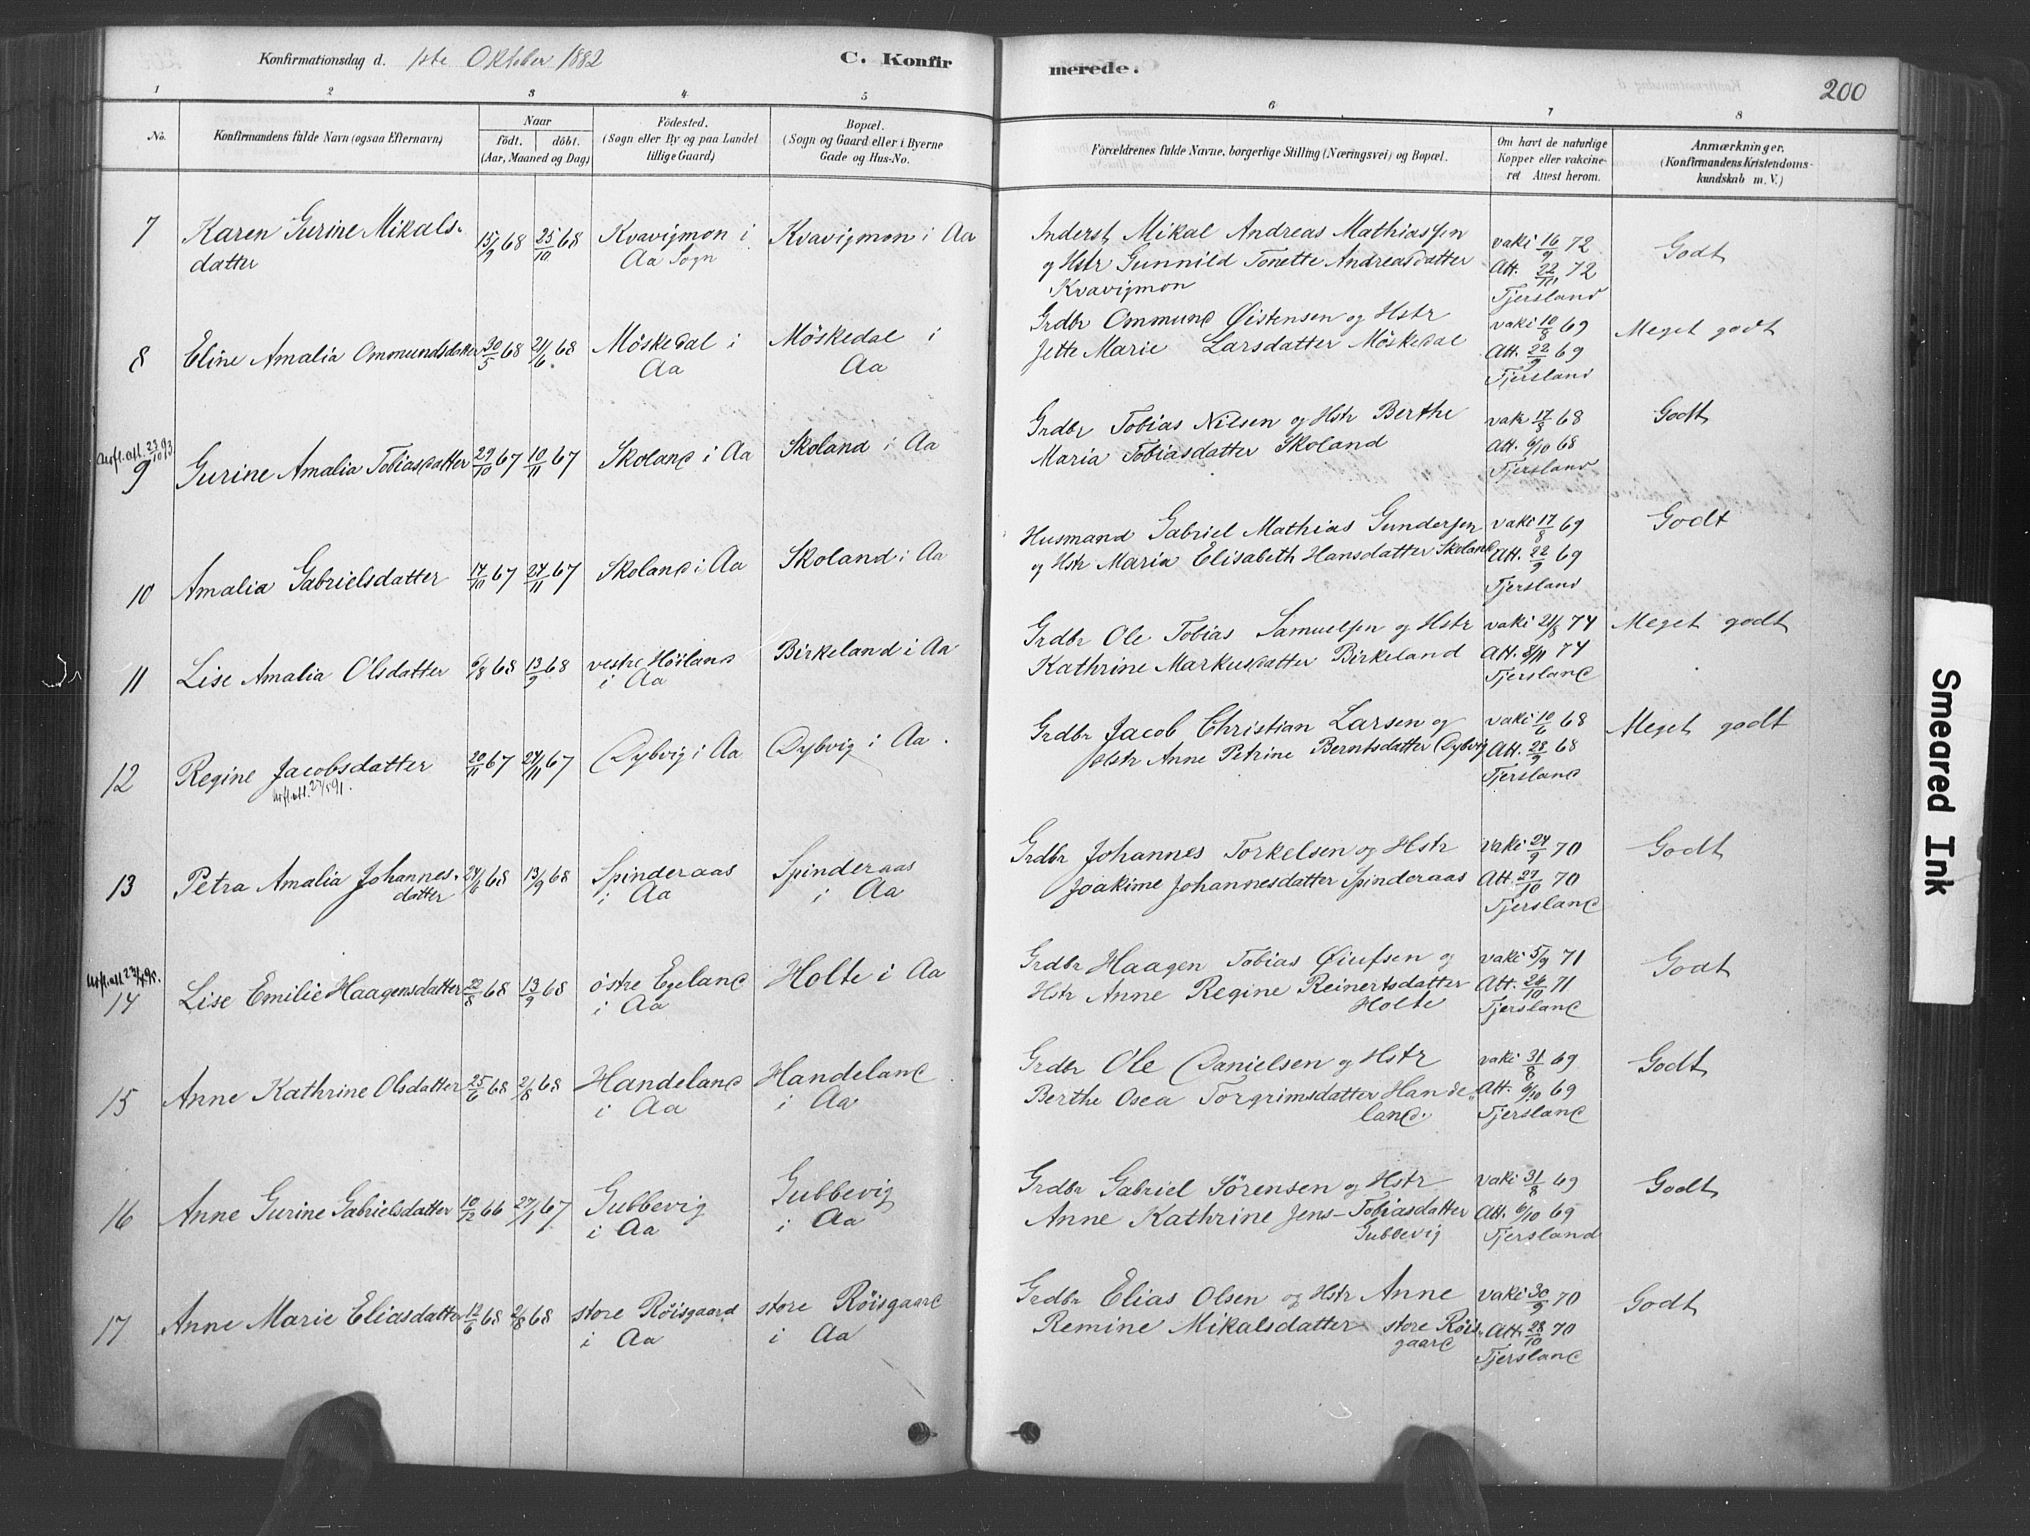 Konfirmationsdag d. 1ste Oktober 1882
C. Konfir
merede.
200
1 2 3 4 5 6 7 8
No.
Konfirmandens fulde Navn (ogsaa Efternavn)
Naar
födt. döbt.
(Aar, Maaned og Dag)
Födested.
(Sogn eller By og paa Landet
tillige Gaard)
Bopæl.
(Sogn og Gaard eller i Byerne
Gade og Hus-No.
Forældrenes fulde Navne, borgerlige Stilling (Næringsvei) og Bopæl.
Om havt de naturlige
Kopper eller vakcine-
ret Attest herom.
Anmærkninger.
(Konfirmandens Kristendoms-
kundskab m. V.)
7 Karen Gurine Mikals- 15/9 68 25/10 68 Kvavigmon i Kvavigmon i Aa Inderst Mikal Andreas Mathiassen vaki 16/9 72 Godt
datter Aa Sogn og Hstr Gunnild Tonette Andreasdatter Att. 22/10 72
Kvavigmon Tjersland
8 Eline Amalia Ommundsdatter 30/5 68 21/6 68 Möskedal i Möskedal i Grdbr Ommund Øistensen og Hstr vaki 10/8 69 Meget godt
Aa Aa Jette Marie Larsdatter Möskedal Att. 22/9 69
Tjersland
9 Gurine Amalia Tobiasdatter 29/10 67 10/11 67 Skoland i Aa Skoland i Aa Grdbr Tobias Nilsen og Hstr Berthe vak 17/8 68 Godt
Maria Tobiasdatter Skoland Att. 6/10 68
Tjersland
10 Amalia Gabrielsdatter 14/10 67 24/11 67 Skoland i Aa Skoland i Aa Husmand Gabriel Mathias Gundersen vaki 17/8 69 Godt
og Hstr Maria Elisabeth Hansdatter Skoland Att. 22/9 69
Tjersland
11 Lise Amalia Olsdatter 6/8 68 13/9 68 vestre Höiland Birkeland i Aa Grdbr Ole Tobias Samuelsen og Hstr vaki 21/8 74 Meget godt
i Aa Kathrine Markusdatter Birkeland Att. 8/11 74
Tjersland
12 Regine Jacobsdatter 20/11 67 24/11 67 Dybvig i Aa Dybvig i Aa. Grdbr Jacob Christian Larsen og vaki 10/6 68 Meget godt
Hstr Anne Petrine Berntsdatter Dybvig Att. 28/9 68
Tjersland
13 Petra Amalia Johannes- 24/6 68 13/9 68 Spinderaas Spinderaas Grdbr Johannes Torkelsen og Hstr vaki 24/9 70 Godt
datter i Aa i Aa Joakime Johannesdatter Spinderaas Att. 27/10 70
Tjersland
14 Lise Emilie Haagensdatter 22/8 68 13/9 68 östre Egeland Holte i Aa Grdbr Haagen Tobias Øiufsen og vaki 5/9 71 Godt
i Aa Hstr Anne Regine Reinertsdatter Att. 26/10 71
Holte Tjersland
15 Anne Kathrine Olsdatter 25/6 68 2/8 68 Handeland Handeland Grdbr Ole Danielsen og Hstr vaki 31/8 69 Godt
i Aa i Aa Berthe Osea Torgrimsdatter Hande Att. 6/10 69
land. Tjersland
16 Anne Gurine Gabrielsdatter 10/12 66 27/1 67 Gubbevig Gubbevig Grdbr Gabriel Sörensen og Hstr vaki 31/8 69 Godt
i Aa i Aa Anne Kathrine Jens-Tobiasdatter Att. 6/10 69
Gubbevig Tjersland
17 Anne Marie Eliasdatter 12/6 68 2/8 68 store Röisgaard store Röisgaard Grdbr Elias Olsen og Hstr Anne vaki 30/9 70 Godt
i Aa i Aa Remine Mikalsdatter store Röis Att. 28/10 70
gaard Tjersland
Smeared Ink